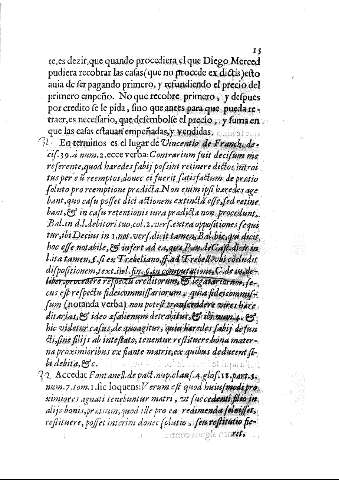 13
te, es dezir, que quando procediera el que Diego Merced
pudiera recobrar las casas (que no procede ex dictis) esto
auia de ser pagando primero, y refundiendo el precio del
primero empeño. No que recobre primero, y despues
por credito se le pida, sino que antes para que pueda re-
traer, es necesario, que desembolse el precio, y suma en
que las casas estauan empeñadas, y vendidas.
71 En terminos es el lugar de Vincentio de Franch. de-
cis. 39. a num. 2. ecce verba: Contrarium fuit decisum me
referente, quod haredes possint retinere dictos
tus per eū reemptos, donec et fuerit satisfactum de pretio
soluto pro reemptione predicta. Non enim ipsi haredes
bant, quo casu posset dici actionem extinctā esse, sed
bant, & in casu retentionis iura predicta non procedunt.
Bal. in d. l. debitori suo, col. 2. vers. extra oppositiones sequi
tur, ibi Decius in 1. not. vers. dicit tamen, Bal. hic, qui dicit
hoc esse notabile, & infert ad ea, que Pau. de Cast. dicit in
l. ita tamen, §. si ex Trebeliano, ff. ad Trebell. vbi
dispositionem, text. in l. fin. §. in computatione, C. de iu. de-
liber. procedere respectu creditorum, & legatariorum, se-
cus est respectu fideicommissariorum, quia fideicommis-
sum (notanda verba) non potest transcendere vires hare-
ditarias, & ideo & ibi num. 4. &
hic videtur casus, de quo agitur, quia haredes defun-
cti, sine filijs ab intestato, tenentur restituere bona mater-
na proximioribus ex stante matris, ex quibus deducent si-
bi debita, &c.
72 Accedat Fontanell. de pact. nupt. claus. 4. glos. 18. part. 3.
num. 7. tom. 1. sic loquens: Verum est quod huiusmodi pro
ximiores agnati tenebuntur matri, vt succedenti filio in
alijs bonis, pretium, quod ille pro ea redimenda soluisset,
restituere, posset interim donec solutio, seu restitutio fie-
ret,